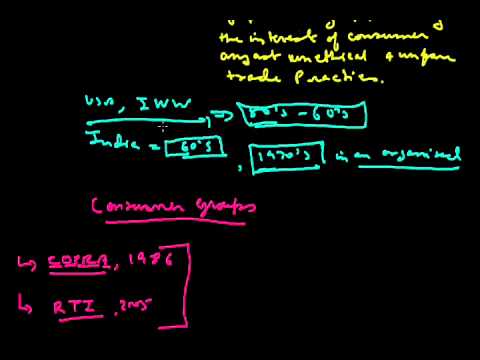 the interest of consumer
against unethical & unfair
trade Practices.
USA, IWW => 50's - 60's
India = 60's, 1970's in an organised
Consumer groups
↳ COPRA, 1986
↳ RTI, 2005